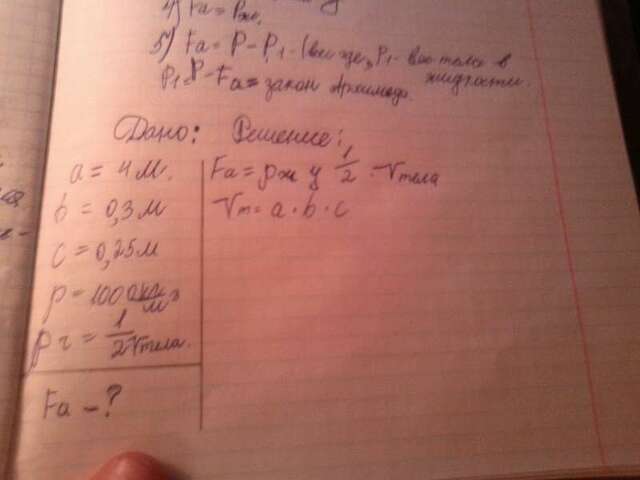 4) Fa = Pж.
5) Fa = P - P1 - (вес где, P1 - вес тела в жидкости.
P1 = P - Fa = закон Архимеда.
Дано: Решение:
a = 4 м.
Fa = ρж g 1/2 · Vтела
b = 0,3 м
Vт = a · b · c
c = 0,25 м
ρ = 1000 кг/м³
1/2 Vтела.
Fa - ?